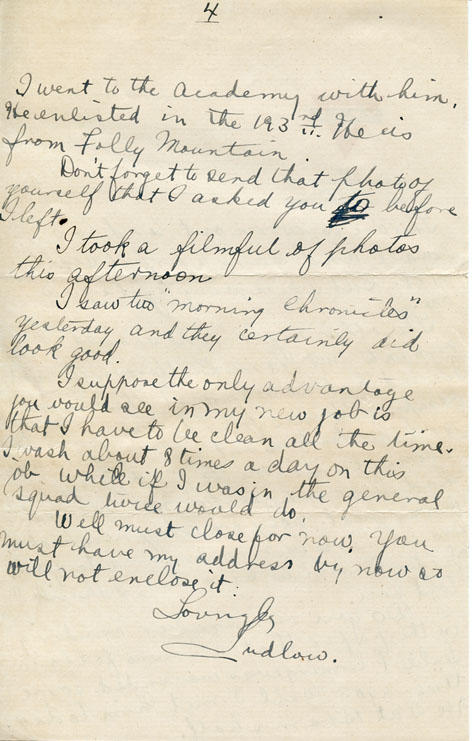 4
I went to the academy with him.
He enlisted in the 193rd. He is
from Folly Mountain
Don't forget to send that photo of
yourself that I asked you to before
I left.
I took a filmful of photos
this afternoon
I saw two "morning chronicles"
yesterday and they certainly did
look good.
I suppose the only advantage
you would see in my new job is
that I have to be clean all the time.
I wash about 8 times a day on this
job while if I was in the general
squad twice would do.
Well must close for now. You
must have my address by now so
will not enclose it.
Lovingly
Ludlow.